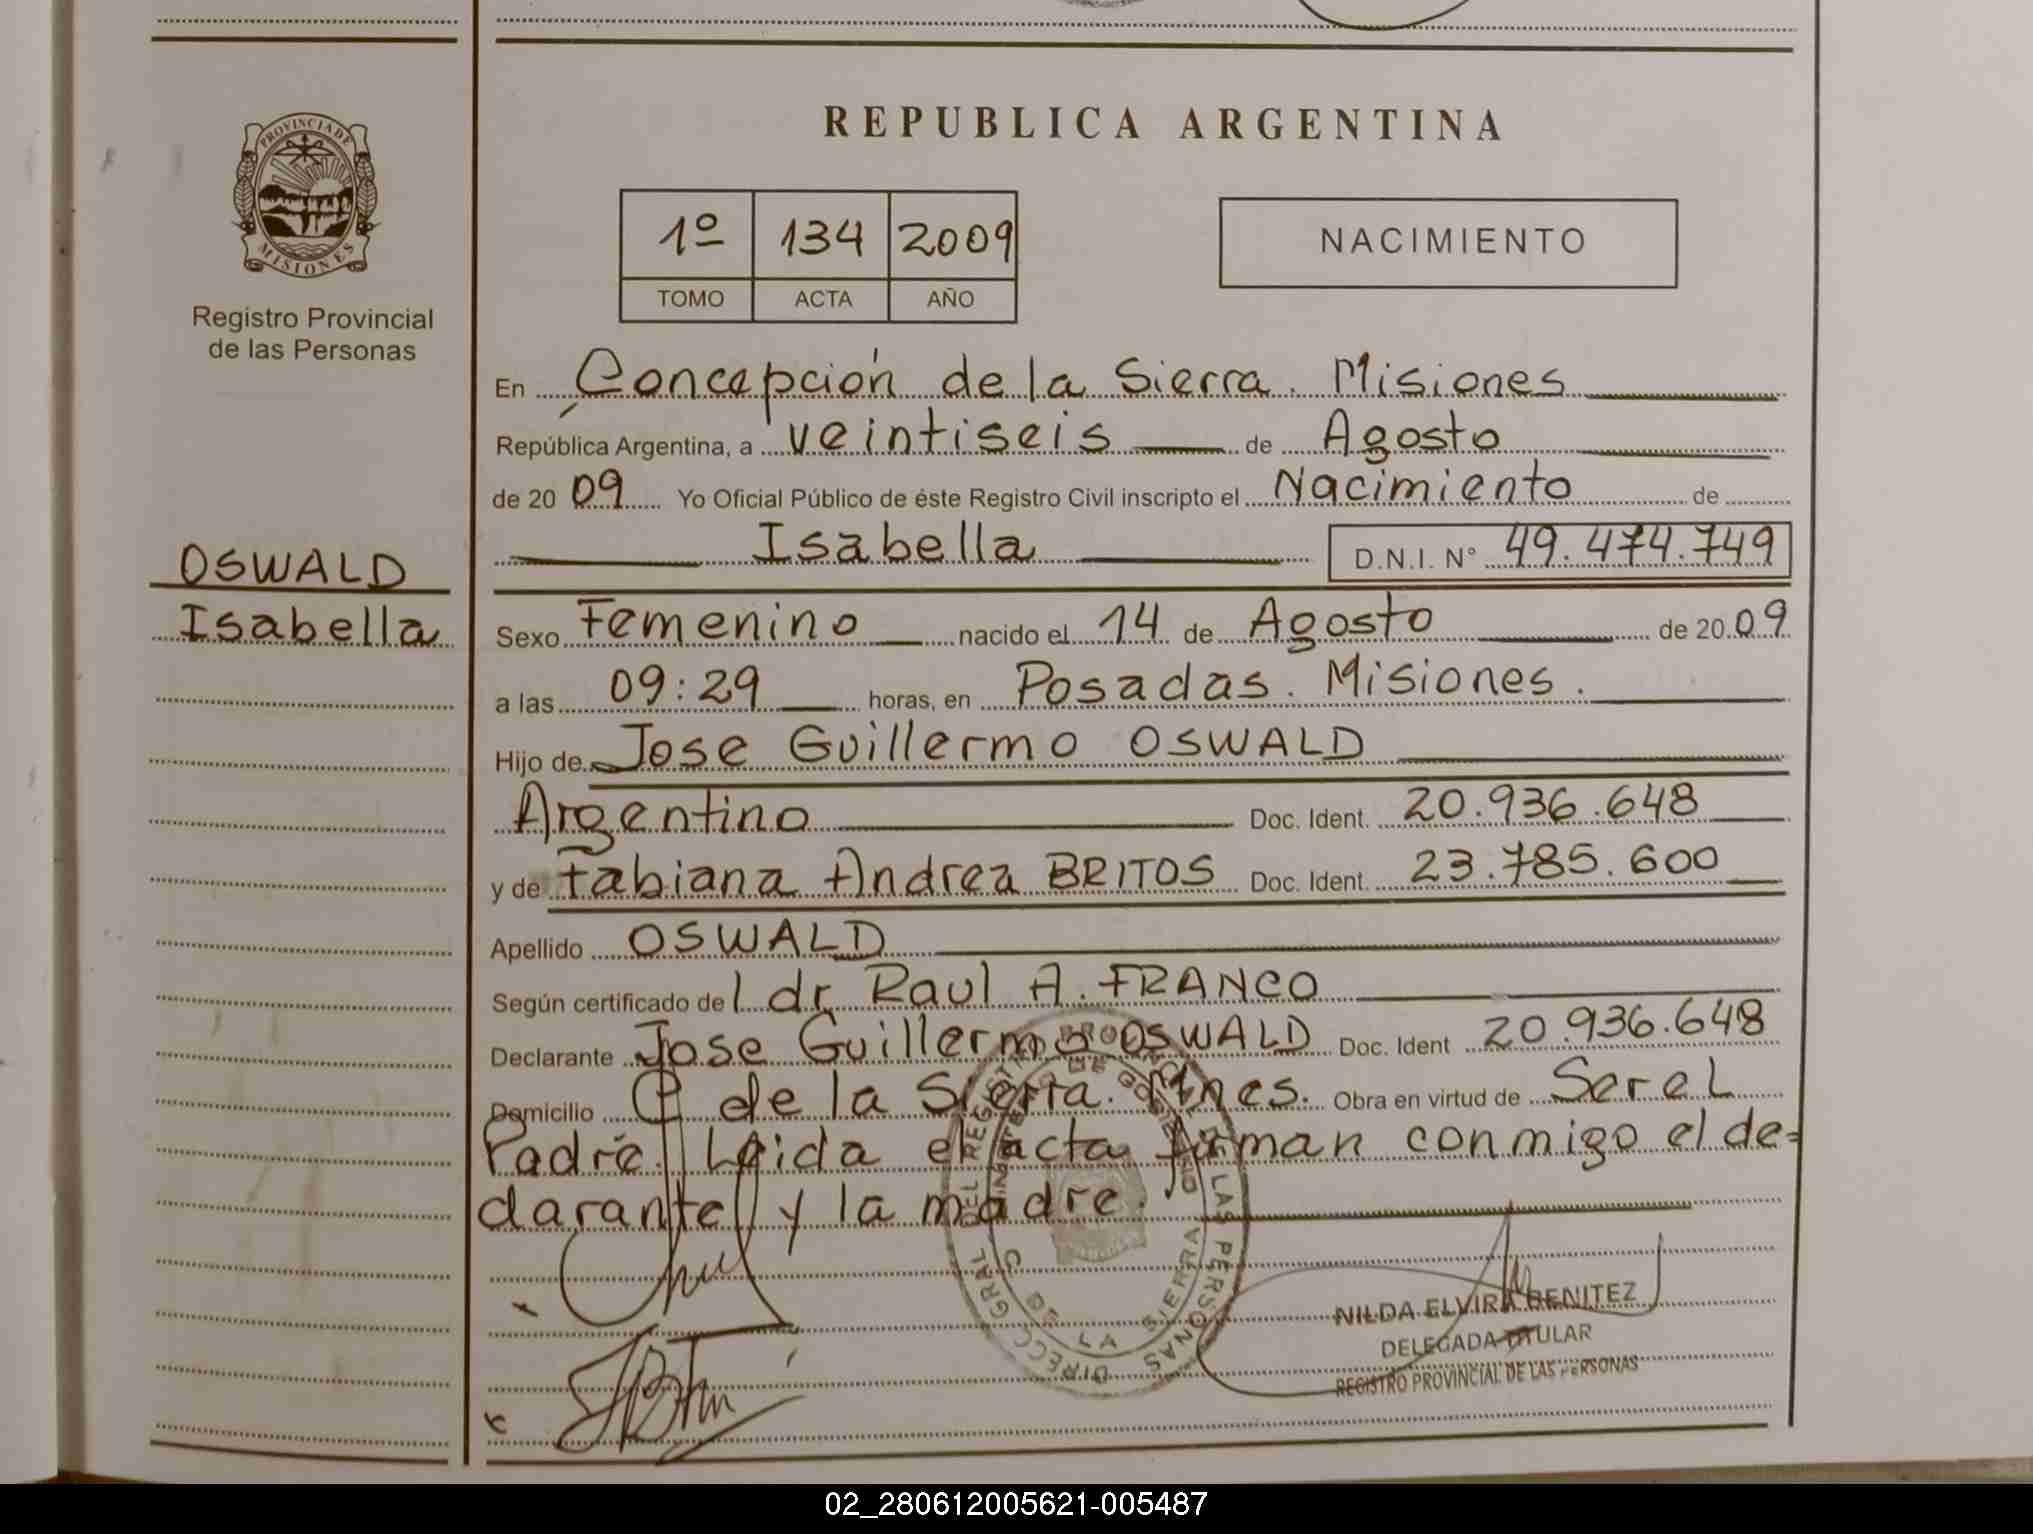 PROVINCIA DE
MISIONES
Registro Provincial
de las Personas
OSWALD
Isabella
REPUBLICA ARGENTINA
1º 134 2009
TOMO ACTA AÑO
NACIMIENTO
En Concepción de la Sierra. Misiones
República Argentina, a veintiseis de Agosto
de 2009 Yo Oficial Público de éste Registro Civil inscripto el Nacimiento de
Isabella D.N.I. Nº 49.474.749
Sexo Femenino nacido el 14 de Agosto de 2009
a las 09:29 horas, en Posadas. Misiones.
Hijo de Jose Guillermo OSWALD
Argentino Doc. Ident. 20.936.648
y de Fabiana Andrea BRITOS Doc. Ident. 23.785.600
Apellido OSWALD
Según certificado del dr Raul A. FRANCO
Declarante Jose Guillermo OSWALD Doc. Ident 20.936.648
Domicilio C. de la Sierra. Mnes. Obra en virtud de Ser el
Padre. Leida el acta firman conmigo el de=
clarante y la madre.
DIRECC GRAL DEL REGISTRO PROVINCIAL DE LAS PERSONAS
C. DE LA SIERRA
NILDA ELVIRA BENITEZ
DELEGADA TITULAR
REGISTRO PROVINCIAL DE LAS PERSONAS
02_280612005621-005487